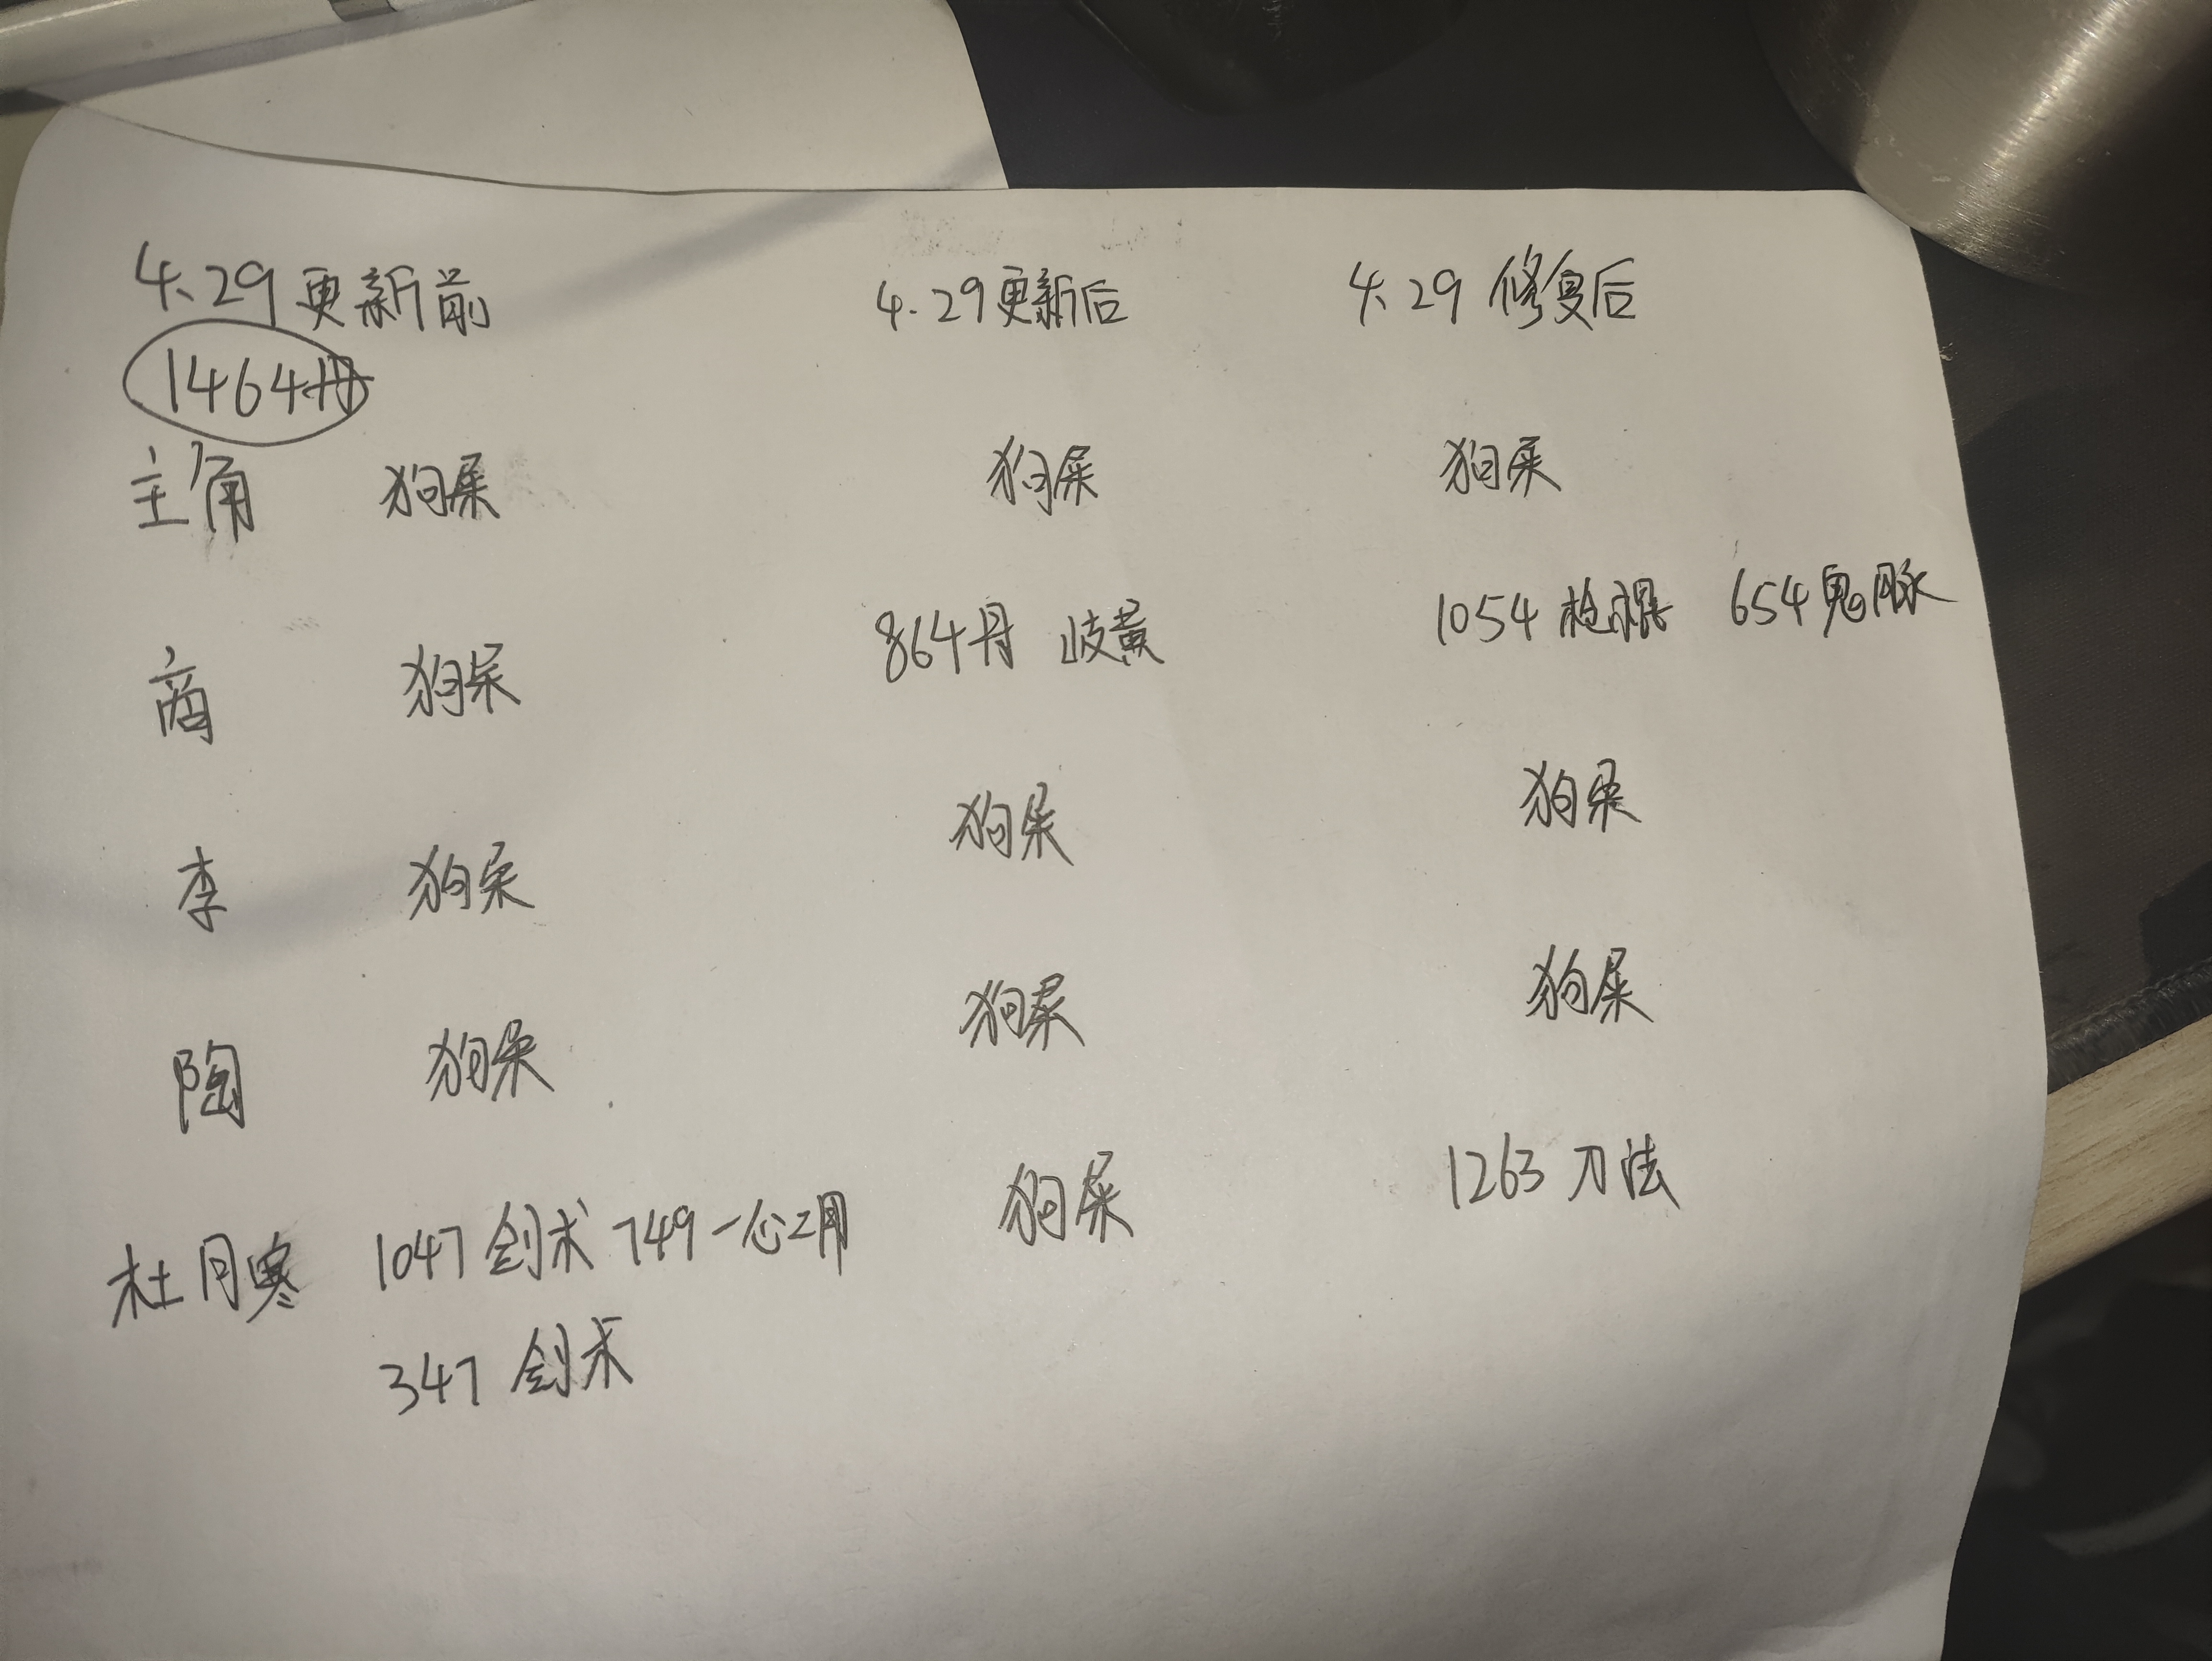 4.29更新前 4.29更新后 4.29修复后
1464丹
主角 狗屎 狗屎 狗屎
商 狗屎 864丹 岐黄 1054 枪棍 654鬼脉
李 狗屎 狗屎 狗屎
陶 狗屎 狗屎 狗屎
杜月寒 1047 剑术 749一心二用 狗屎 1263 刀法
347 剑术